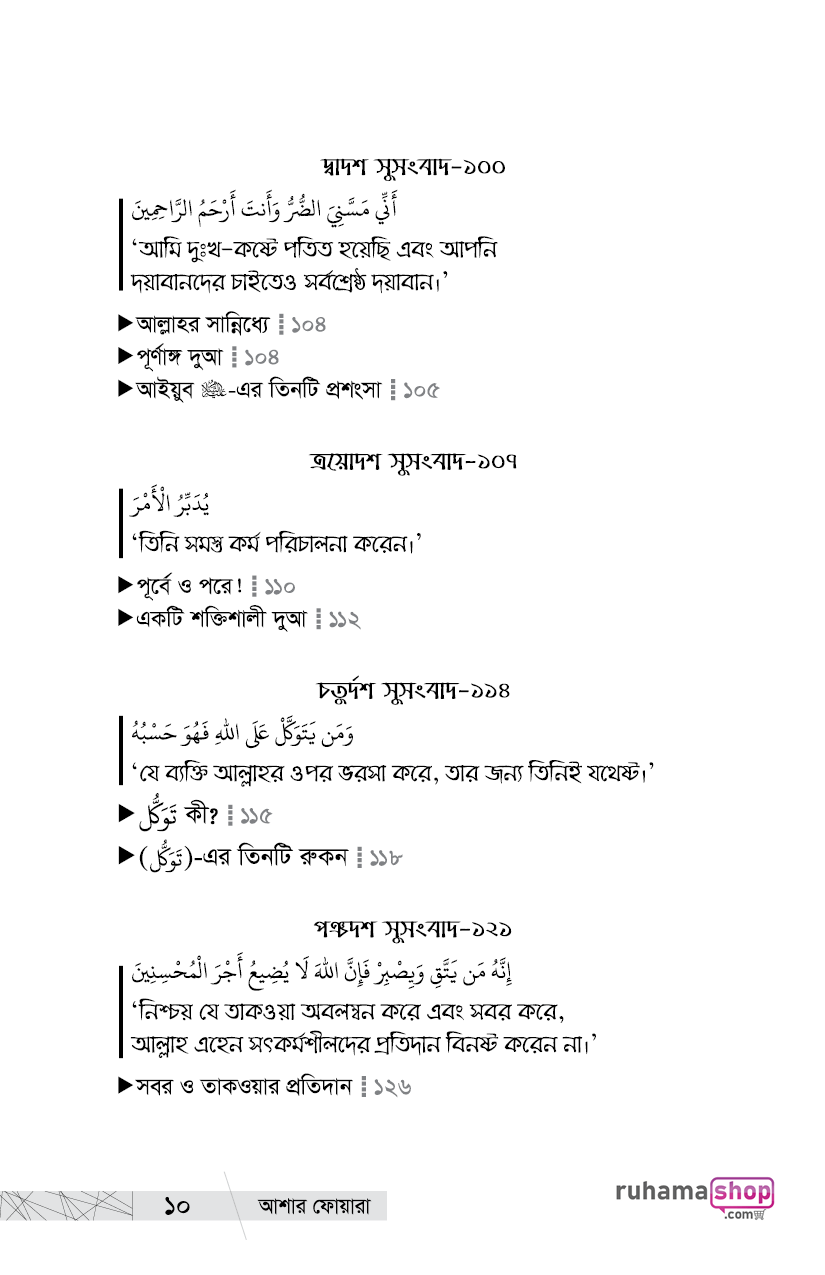 দ্বাদশ সুসংবাদ-১০০
أَنِّي مَسَّنِيَ الضُّرُّ وَأَنتَ أَرْحَمُ الرَّاحِمِينَ
‘আমি দুঃখ-কষ্টে পতিত হয়েছি এবং আপনি
দয়াবানদের চাইতেও সর্বশ্রেষ্ঠ দয়াবান।’
▶আল্লাহর সান্নিধ্যে ⁞ ১০৪
▶পূর্ণাঙ্গ দুআ ⁞ ১০৪
▶আইয়ুব ﷺ-এর তিনটি প্রশংসা ⁞ ১০৫
ত্রয়োদশ সুসংবাদ-১০৭
يُدَبِّرُ الْأَمْرَ
‘তিনি সমস্ত কর্ম পরিচালনা করেন।’
▶পূর্বে ও পরে! ⁞ ১১০
▶একটি শক্তিশালী দুআ ⁞ ১১২
চতুর্দশ সুসংবাদ-১১৪
وَمَن يَتَوَكَّلْ عَلَى اللهِ فَهُوَ حَسْبُهُ
‘যে ব্যক্তি আল্লাহর ওপর ভরসা করে, তার জন্য তিনিই যথেষ্ট।’
▶تَوَكُّل কী? ⁞ ১১৫
▶(تَوَكُّل)-এর তিনটি রুকন ⁞ ১১৮
পঞ্চদশ সুসংবাদ-১২১
إِنَّهُ مَن يَتَّقِ وَيِصْبِرْ فَإِنَّ اللهَ لَا يُضِيعُ أَجْرَ الْمُحْسِنِينَ
‘নিশ্চয় যে তাকওয়া অবলম্বন করে এবং সবর করে,
আল্লাহ এহেন সৎকর্মশীলদের প্রতিদান বিনষ্ট করেন না।’
▶সবর ও তাকওয়ার প্রতিদান ⁞ ১২৬
১০ আশার ফোয়ারা
ruhamashop
.com